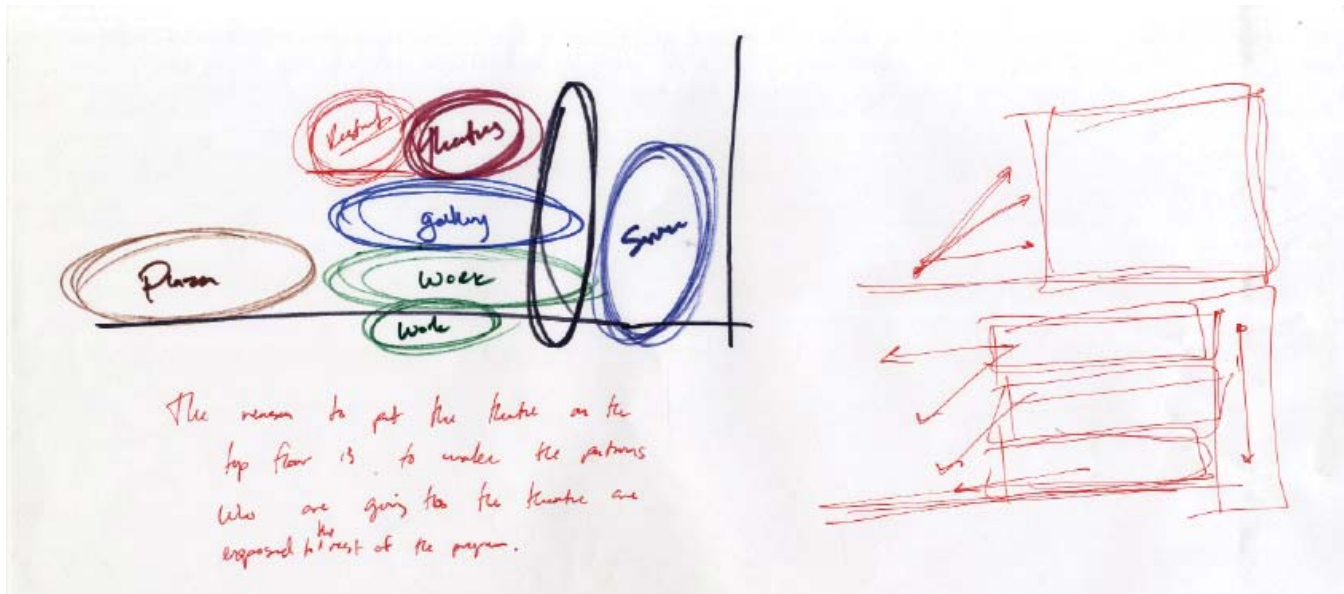 Theatres
gallery
Work
Work
The reason to put the theatre on the
top floor is to make the patrons
who are going too the theatre are
exposed to the rest of the program.